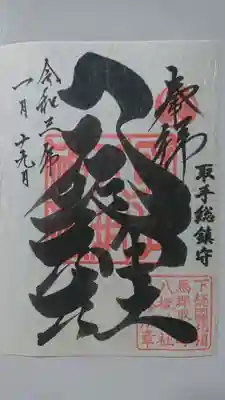 奉拝
取手総鎮守
八坂神社
令和三年
一月十九日
下総國相
馬郡取
八坂